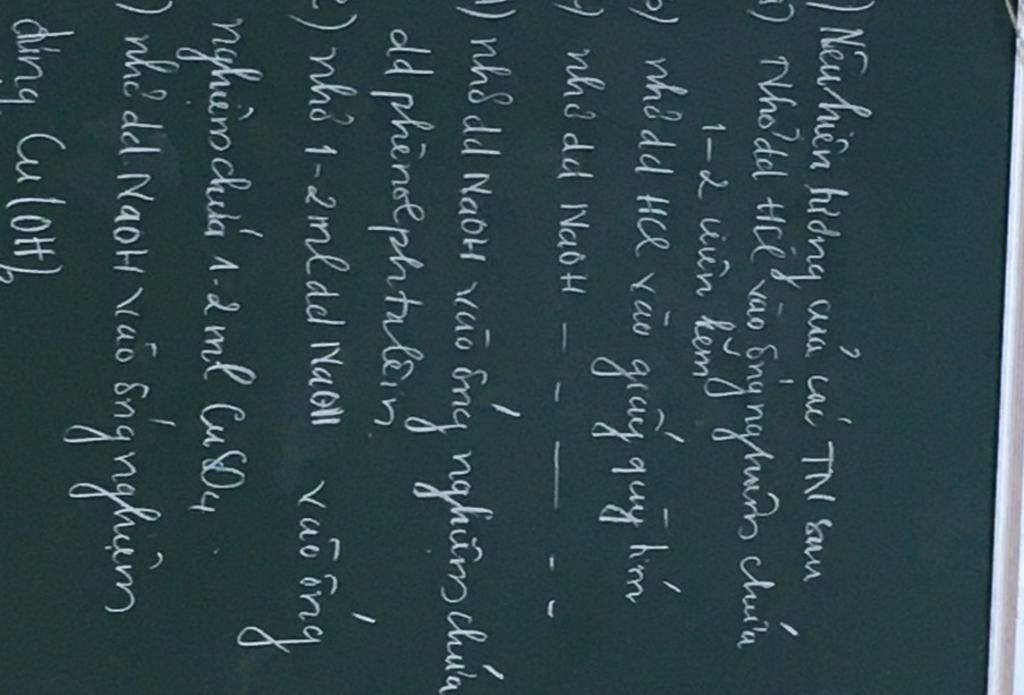 ) Nêu hiện tượng của các TN sau
a) Nhỏ dd HCl vào ống nghiệm chứa
1-2 viên kẽm
b) nhỏ dd HCl vào giấy quỳ tím
c) nhỏ dd NaOH - - — - -
d) nhỏ dd NaOH vào ống nghiệm chứa
dd phênolphtalêin
e) nhỏ 1-2ml dd NaOH vào ống
nghiệm chứa 1-2ml CuSO4
) nhỏ dd NaOH vào ống nghiệm
đựng Cu(OH)2